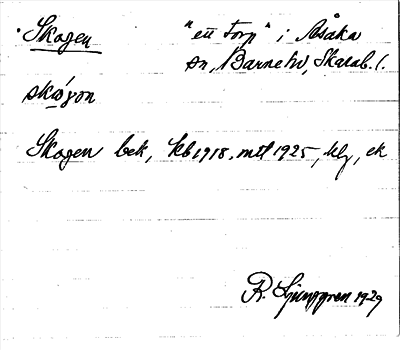 Skogen "ett torp" i Åsaka
sn, Barne hd, Skarab. l.
skó̱gon
Skogen bek, kb 1918, mtl 1925, klg, ek
R. Ljunggren 1929